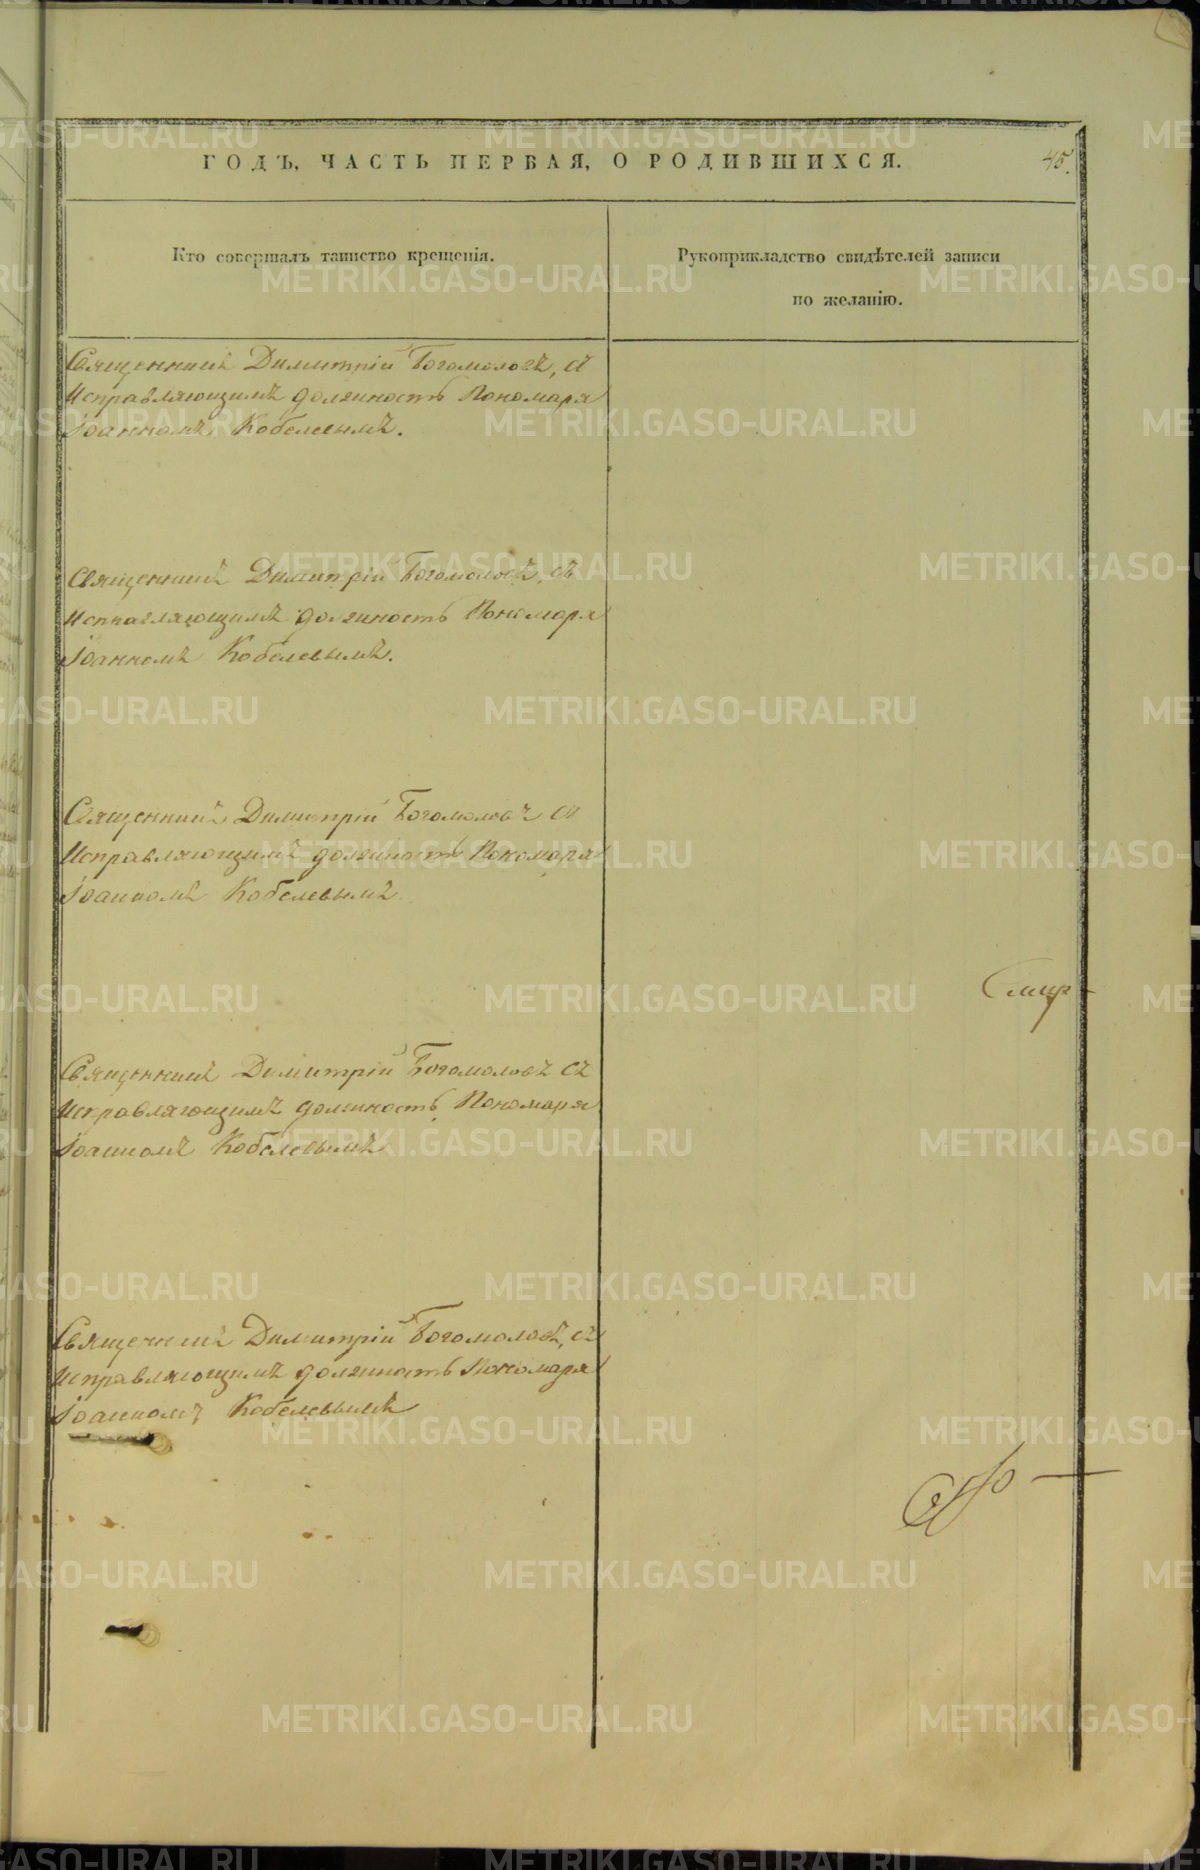 ГОДЪ, ЧАСТЬ ПЕРВАЯ, О РОДИВШИХСЯ.
45.
Кто совершалъ таинство крещенія.
Рукоприкладство свидѣтелей записи
по желанію.
Священникъ Димитрій Богомоловъ, съ
Исправляющимъ должность Пономаря
Іоанномъ Кобелевымъ.
Священникъ Димитрій Богомоловъ, съ
Исправляющимъ должность Пономаря
Іоанномъ Кобелевымъ.
Священникъ Димитрій Богомоловъ съ
Исправляющимъ должность Пономаря
Іоанномъ Кобелевымъ
Священникъ Димитрій Богомоловъ съ
Исправляющимъ должность Пономаря
Іоанномъ Кобелевымъ
Священникъ Димитрій Богомоловъ, съ
Исправляющимъ должность Пономаря
Іоанномъ Кобелевымъ
METRIKI.GASO-URAL.RU